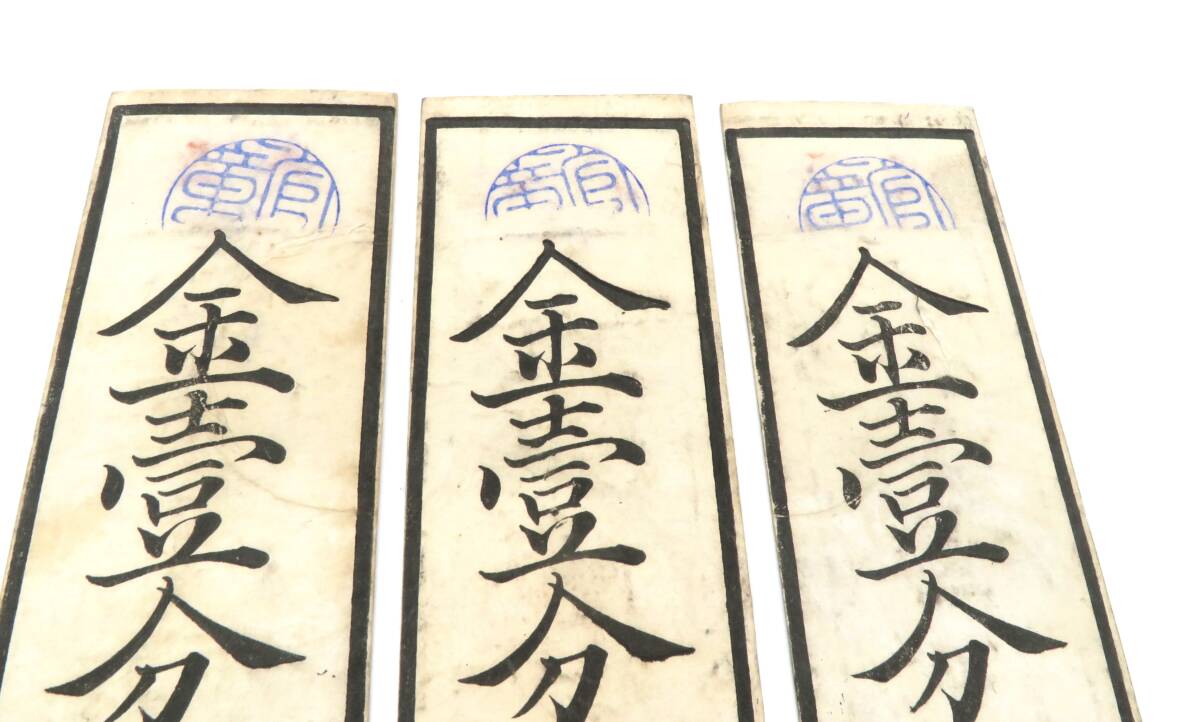 金壹分
金壹分
金壹分